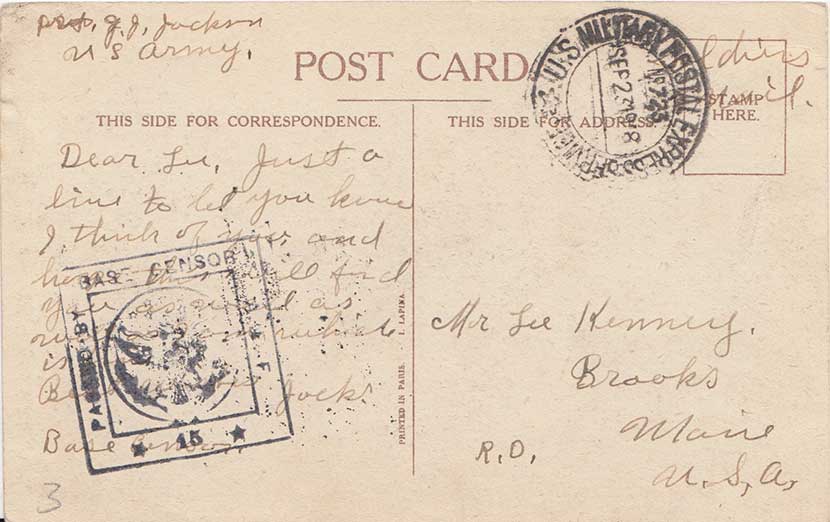 Pvt. J. J. Jackson
U S Army.
Soldiers
Mail.
POST CARD
U.S. MILITARY POSTAL EXPRESS SERVICE
No 723
SEP 2 1918
STAMP
HERE.
THIS SIDE FOR CORRESPONDENCE.
THIS SIDE FOR ADDRESS.
Dear Lee, Just a
line to let you know
I think of you and
hope this will find
you as well as
is
Jack
Base Censor.
PASSED BY
BASE CENSOR
A. E. F.
15
PRINTED IN PARIS. I. LAPINA.
Mr Lee Kenney.
Brooks
Maine
R.D.
U.S.A.
3